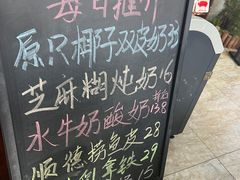 每日推介
原只椰子双皮奶33
芝麻糊炖奶16
水牛奶酸奶138
顺德捞鱼皮28
29
15